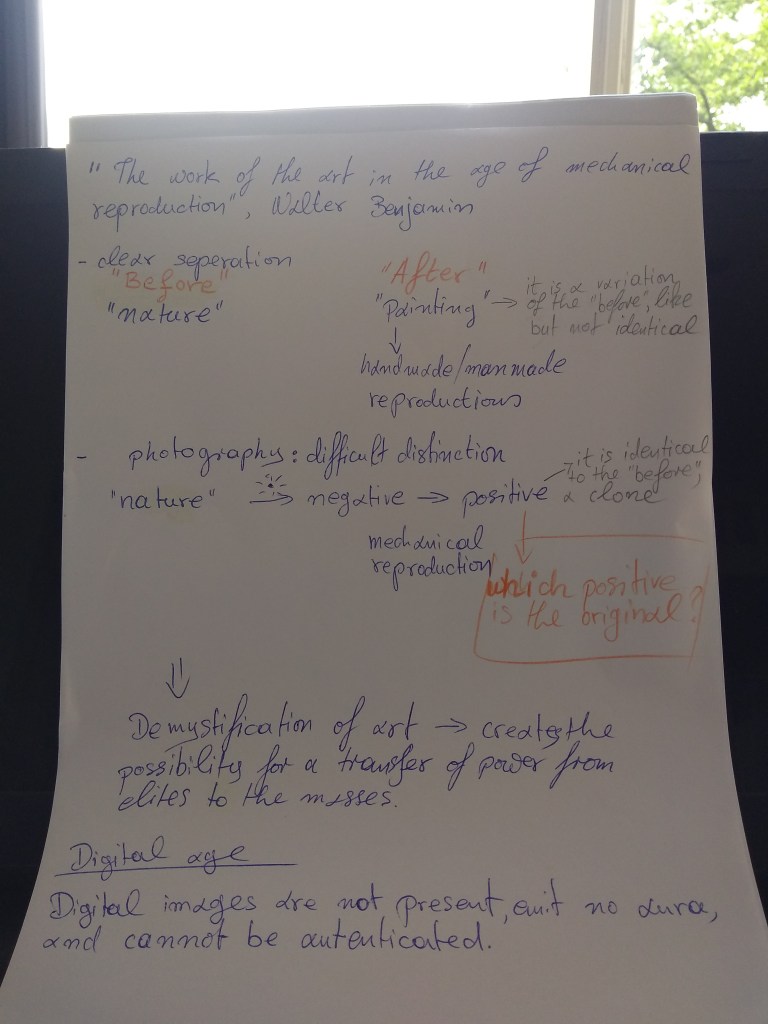 " The work of the art in the age of mechanical
reproduction", Walter Benjamin
- clear seperation
"Before"
"nature"
"After"
"Painting" → it is a variation
of the "before", like
but not identical
↓
handmade/manmade
reproductions
- photography: difficult distinction
"nature" → negative → positive → it is identical
to the "before",
a clone
mechanical
reproduction
which positive
is the original?
⇓
Demystification of art → creates the
possibility for a transfer of power from
elites to the masses.
Digital age
Digital images are not present, emit no aura,
and cannot be autenticated.